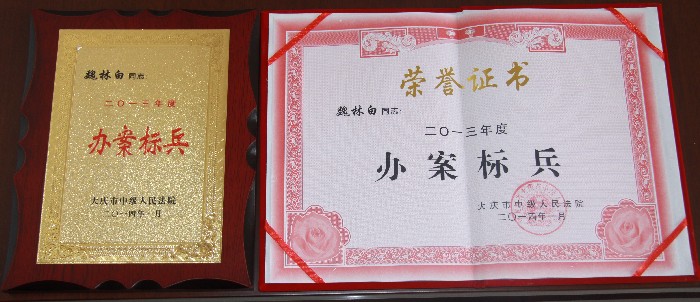 魏林白同志:
二〇一三年度
办案标兵
大庆市中级人民法院
二〇一四年一月
荣誉证书
魏林白同志:
二〇一三年度
办案标兵
大庆市中级人民法院
二〇一四年一月